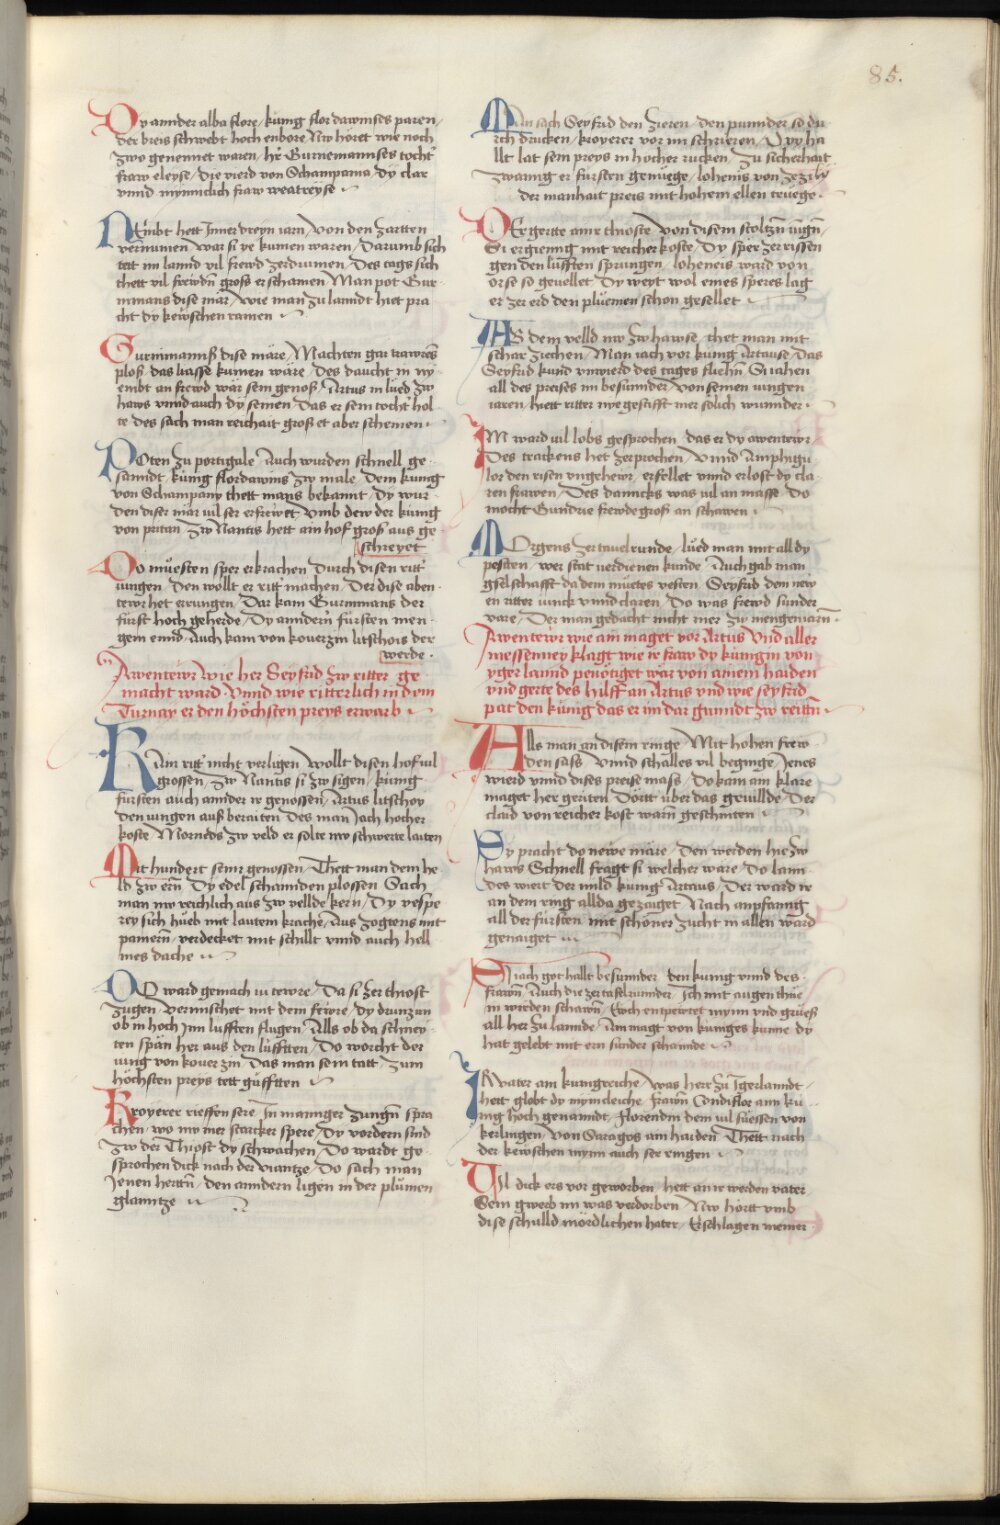 85.
Dy annder alba flore / kunig flordawnses paren /
der breis schwebt hoch enbore Nw höret wie noch
zwo genennet waren / hr Gurnemannses tocht
fraw eleyse / die vierd von Schampania / dy clar
vnnd mynnclich fraw weatreyse
Nembt hett Inner dreyn iarn / Von den zartten
vernumen war si ye kumen waren / Darumb sich
tett im lannd vil frewd zerdrumen / Des tags sich
thett vil frewdn groß erschamen Man pot Gur-
nimans dise mär / wie man zu lanndt hiet pra
cht dy kewschen ramen
Gurnimannß dise märe / Machten gar trawrens
ploß das liasse kumen wäre Des daucht in ny-
embt an frewd wär sein genoß / Artus in lued zw
haws vnnd auch dy seinen Das er sein tocht hol
te des sach man reichait groß et aber scheinen
Poten zu portigale Auch wurden schnell ge-
sanndt kunig flordawns zw male Dem kunig
von Schampany thett mans bekannt / dy wur-
den diser mär vil ser erfrewet Vmb dew der kunig
von pritan zw Nantis hett ain hof groß aus ge-
schreyet
Do muesten sper erkrachen Durch disen ritt
iungen / den wollt er ritt machen / Der dise aben-
tewr het errungen / Dar kam Gurnimans der
fürst hoch geherde / Dy anndern fürsten men-
gem ennd / Auch kam von kouerzin litschois der
werde
Awentewr wie her Seyfrid zw ritter ge
macht ward Vnnd wie ritterlich in dem
Turnay er den höchsten preys erwarb
Kain ritt nicht verligen Wollt disen hof vil
grossen / zw Nantis si zw sigen / kunig
fürsten auch annder ir genossen / Artus litschoy
den iungen auß beraiten Des man iach hocher
koste Morneds zw veld er solte nw schwerte laiten
Mit hundert seinr genossen Thett man dem he-
ld zw ern Dy edel schaniden plossen Sach
man nw reichlich aus zw vellde kern / Dy vespe
rey sich hueb mit lautem krache / Aus zogtens mit
panern / verdecket mit schillt vnnd auch hell
mes dache
Do ward gemach in tewre Da si zer thiost
zugen vermischet mit dem fewre / dy drunzun
ob in hoch Inn lufften flugen / Alls ob da schney-
ten spän her aus den lüfften / Do worcht der
iung von kouerzin / Das man sein tatt zum
höchsten preys tett guffften
Kroyerer rieffen sere In manniger zungn spra
chen / wo nw mer starcker spere / Dy vordern sind
zw der Thiost dy schwachen / Do wardt ge-
sprochen dick nach der viantze / Do sach man
Jenen herttn / den anndern ligen in der plumen
glanntze
Man sach Seyfrid den zieren den punnder so du
rch drucken / kroyerer vor im schrieren / Dyy ha
llt lat sein preys in hocher rucken / zu sicherhait
zwanng er fürsten genuege / lohenis von zezily
der manhait preis mit hohem ellen truege
Er gertte ainr thioste Von disem stoltzn iugn
Si ergienng mit reicher koste / Dy sper zerrissen
gen den lüfften sprungen / loheneis ward von
orse so geuellet Dy weyt wol eines speres lag
er zer erd den pluemen schon gesellet
Ab dem velld nw zw hawse / thet man mit
schar ziechen / Man iach vor kunig Artause / Das
Seyfrid kund vnwierd des tages fliehn Si iahen
all des preises im besunnder Von seinen iungen
iaren / hiett ritter nye gestifft mer solich wunnder
Im ward vil lobs gesprochen das er dy awentewr
Des trackens het zerprochen / Vnnd Amphigu-
lor den risen vngehewr erfellet vnnd erlost dy cla-
ren frawen / Des danncks was vil an masse Do
mocht Gundrie frewde groß an schawen
Morgens zer tauelrunde / lued man mit all dy
pesten / wer stat verdienen kunde Auch gab man
gselschafft da dem muetes vesten Seyfrid dem new
en ritter iunck vnnd claren / Do was frewd sunder
vare / Der man gedacht nicht mer zw mengem iarn
Awentewr wie ain maget vor Artus Vnd aller
messenney klagt wie ir fraw dy kunigin von
yger lannd penötiget wär von ainem haiden
vnd gerte des hilff an Artus vnd wie seyfrid
pat den kunig das er im dar gunndt zw reittn
Alls man an disem ringe Mit hohen frew-
den sass Vnnd schalles vil beginge / Jenes
wierd vnnd dises preise mass / Do kam ain klare
maget her geriten / Dortt über das geuillde Der
claid von reicher kost warn geschniten
Sy pracht do newe märe / den werden hie zw
haws Schnell fragt si welcher wäre / Do lann-
des wiert der milld kunig Artaus / Der ward ir
an dem ring allda gezaiget Nach anpfanng
all der fürsten mit schöner zucht in allen ward
genaiget
Si iach got hallt besunnder den kunig vnnd des-
frawn / Auch die zer tafelrunnder / Ich mit augen thue
in wirden schawn / Ewch enpewtet mynn vnd grueß
all her zu lannde / Ain magt von kuniges kunne dy
hat gelebt mit ern sunder schannde
Ir vater ain kunigreiche / Was herr zu Igerlanndt
hett globt dy mynnicleiche frawn Condiflor ainn ku-
nig hoch genanndt / florendin dem vil suessen von
kerlingen / Von Saragos ain haiden Thett nach
der kewschen mynn auch ser ringen
Vil dick ers vor geworben hett an ir werden vater
Sein gwerb im was verdorben / Nw hörtt vmb
dise schulld mördlichen hater / Erschlagen meiner